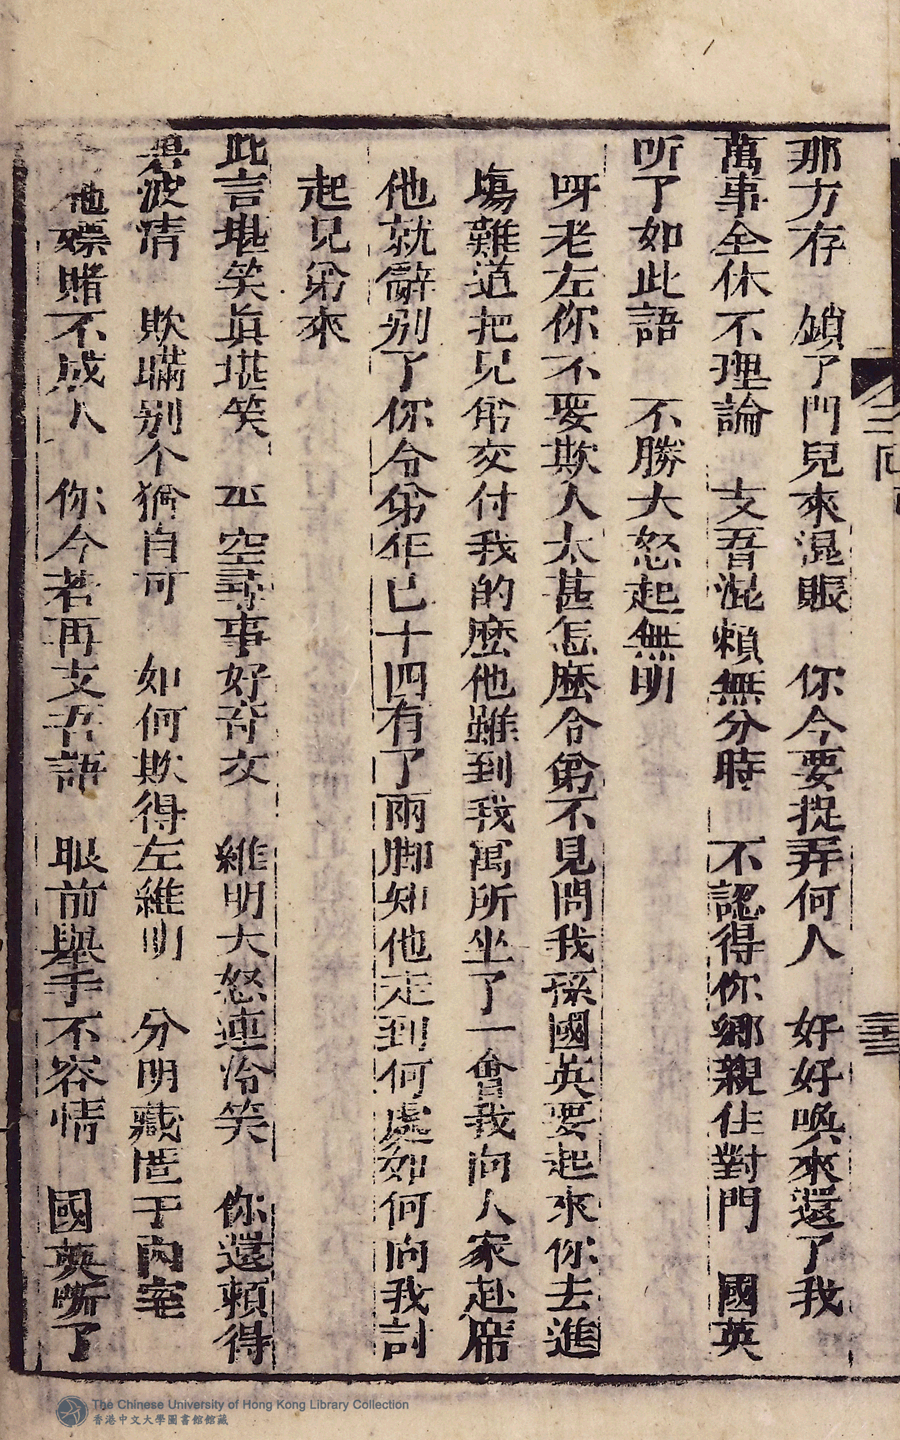 那方存　鎖了門兒來混賬　你今要捉弄何人　好好喚來還了我
萬事全休不理論　支吾混賴無分時　不認得你鄉親住對門　國英
听了如此語　不勝大怒起無明
呀老左你不要欺人太甚怎麽令弟不見問我孫國英要起來你去進
塲難道把兄弟交付我的麽他雖到我寓所坐了一會我向人家赴席
他就辭别了你令弟年已十四有了兩脚知他走到何處如何向我討
起兄弟來
此言堪笑眞堪笑　平空尋事好奇文　維明大怒連冷笑　你還賴得
波清　欺瞞别个猶自可　如何欺得左維明　分明藏匿于內室
他嫖賭不成人　你今若再支吾語　眼前舉手不容情　國英听了
The Chinese University of Hong Kong Library Collection
香港中文大學圖書館館藏